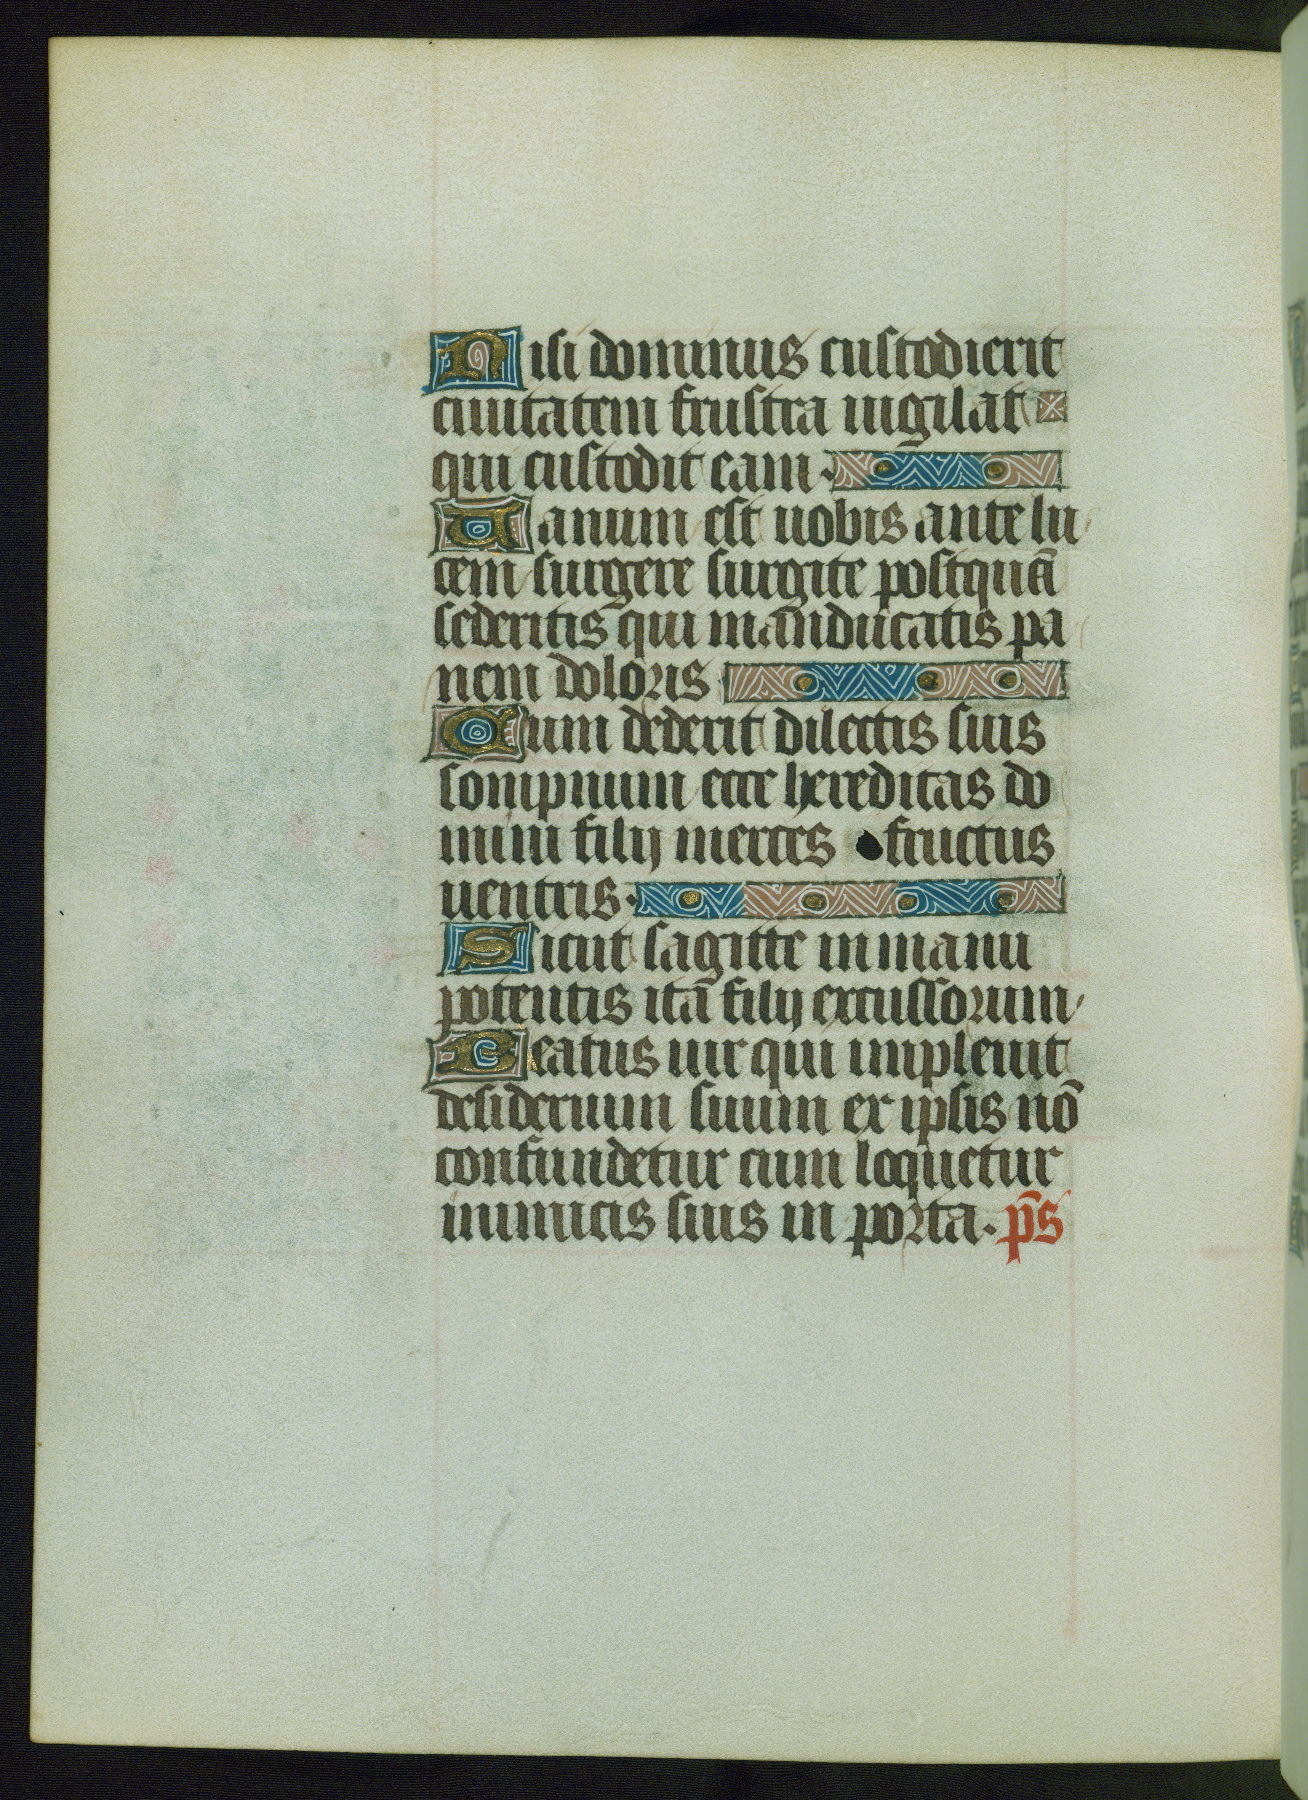 Nisi dominus custodierit
ciuitatem frustra uigilat
qui custodit eam.
Uanum est uobis ante lu
cem surgere surgite postquā
sederitis qui manducatis pa
nem doloris
Cum dederit dilectis suis
sompnum ecce hereditas do
mini filij merces fructus
uentris.
Sicut sagitte in manu
potentis ita filij excussorum
Beatus uir qui impleuit
desiderium suum ex ipsis nō
confundetur cum loquetur
inimicis suis in porta. p̄s